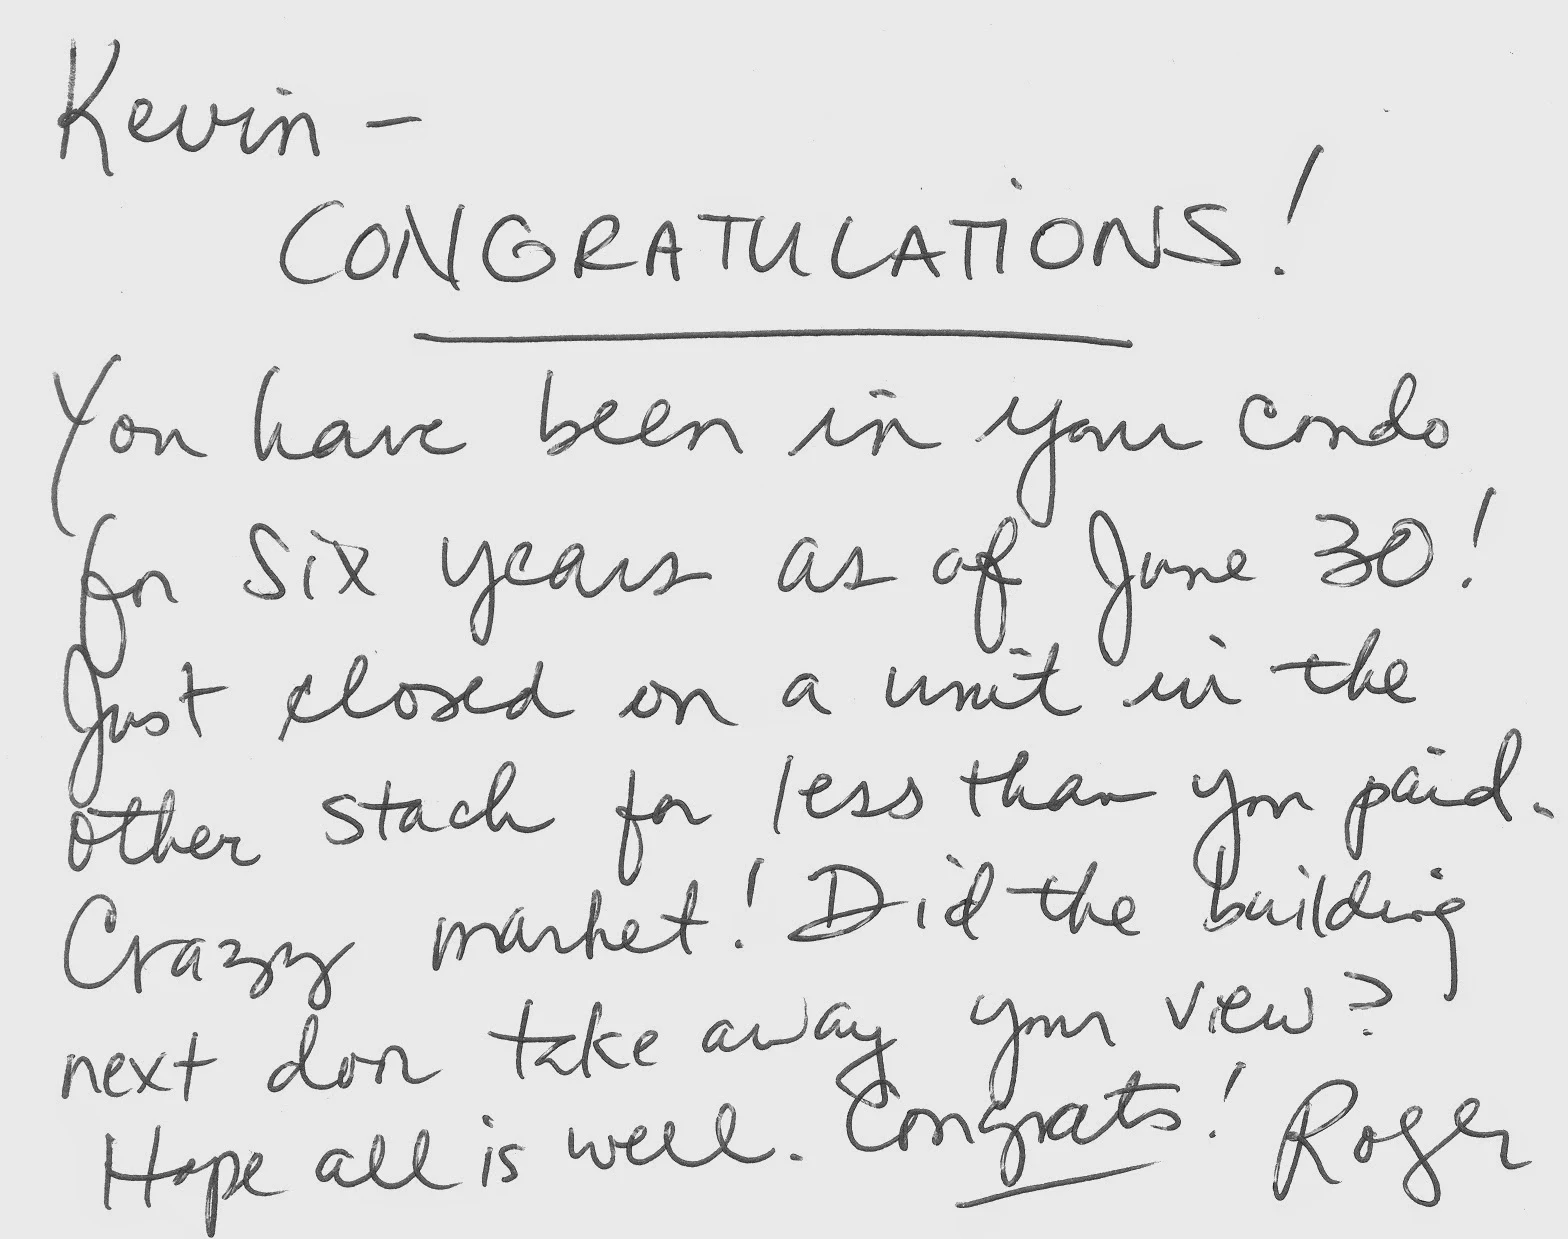 Kevin -
CONGRATULATIONS!
You have been in your condo
for six years as of June 30!
Just closed on a unit in the
other stack for less than you paid.
Crazy market! Did the building
next door take away your view?
Hope all is well. Congrats! Roger